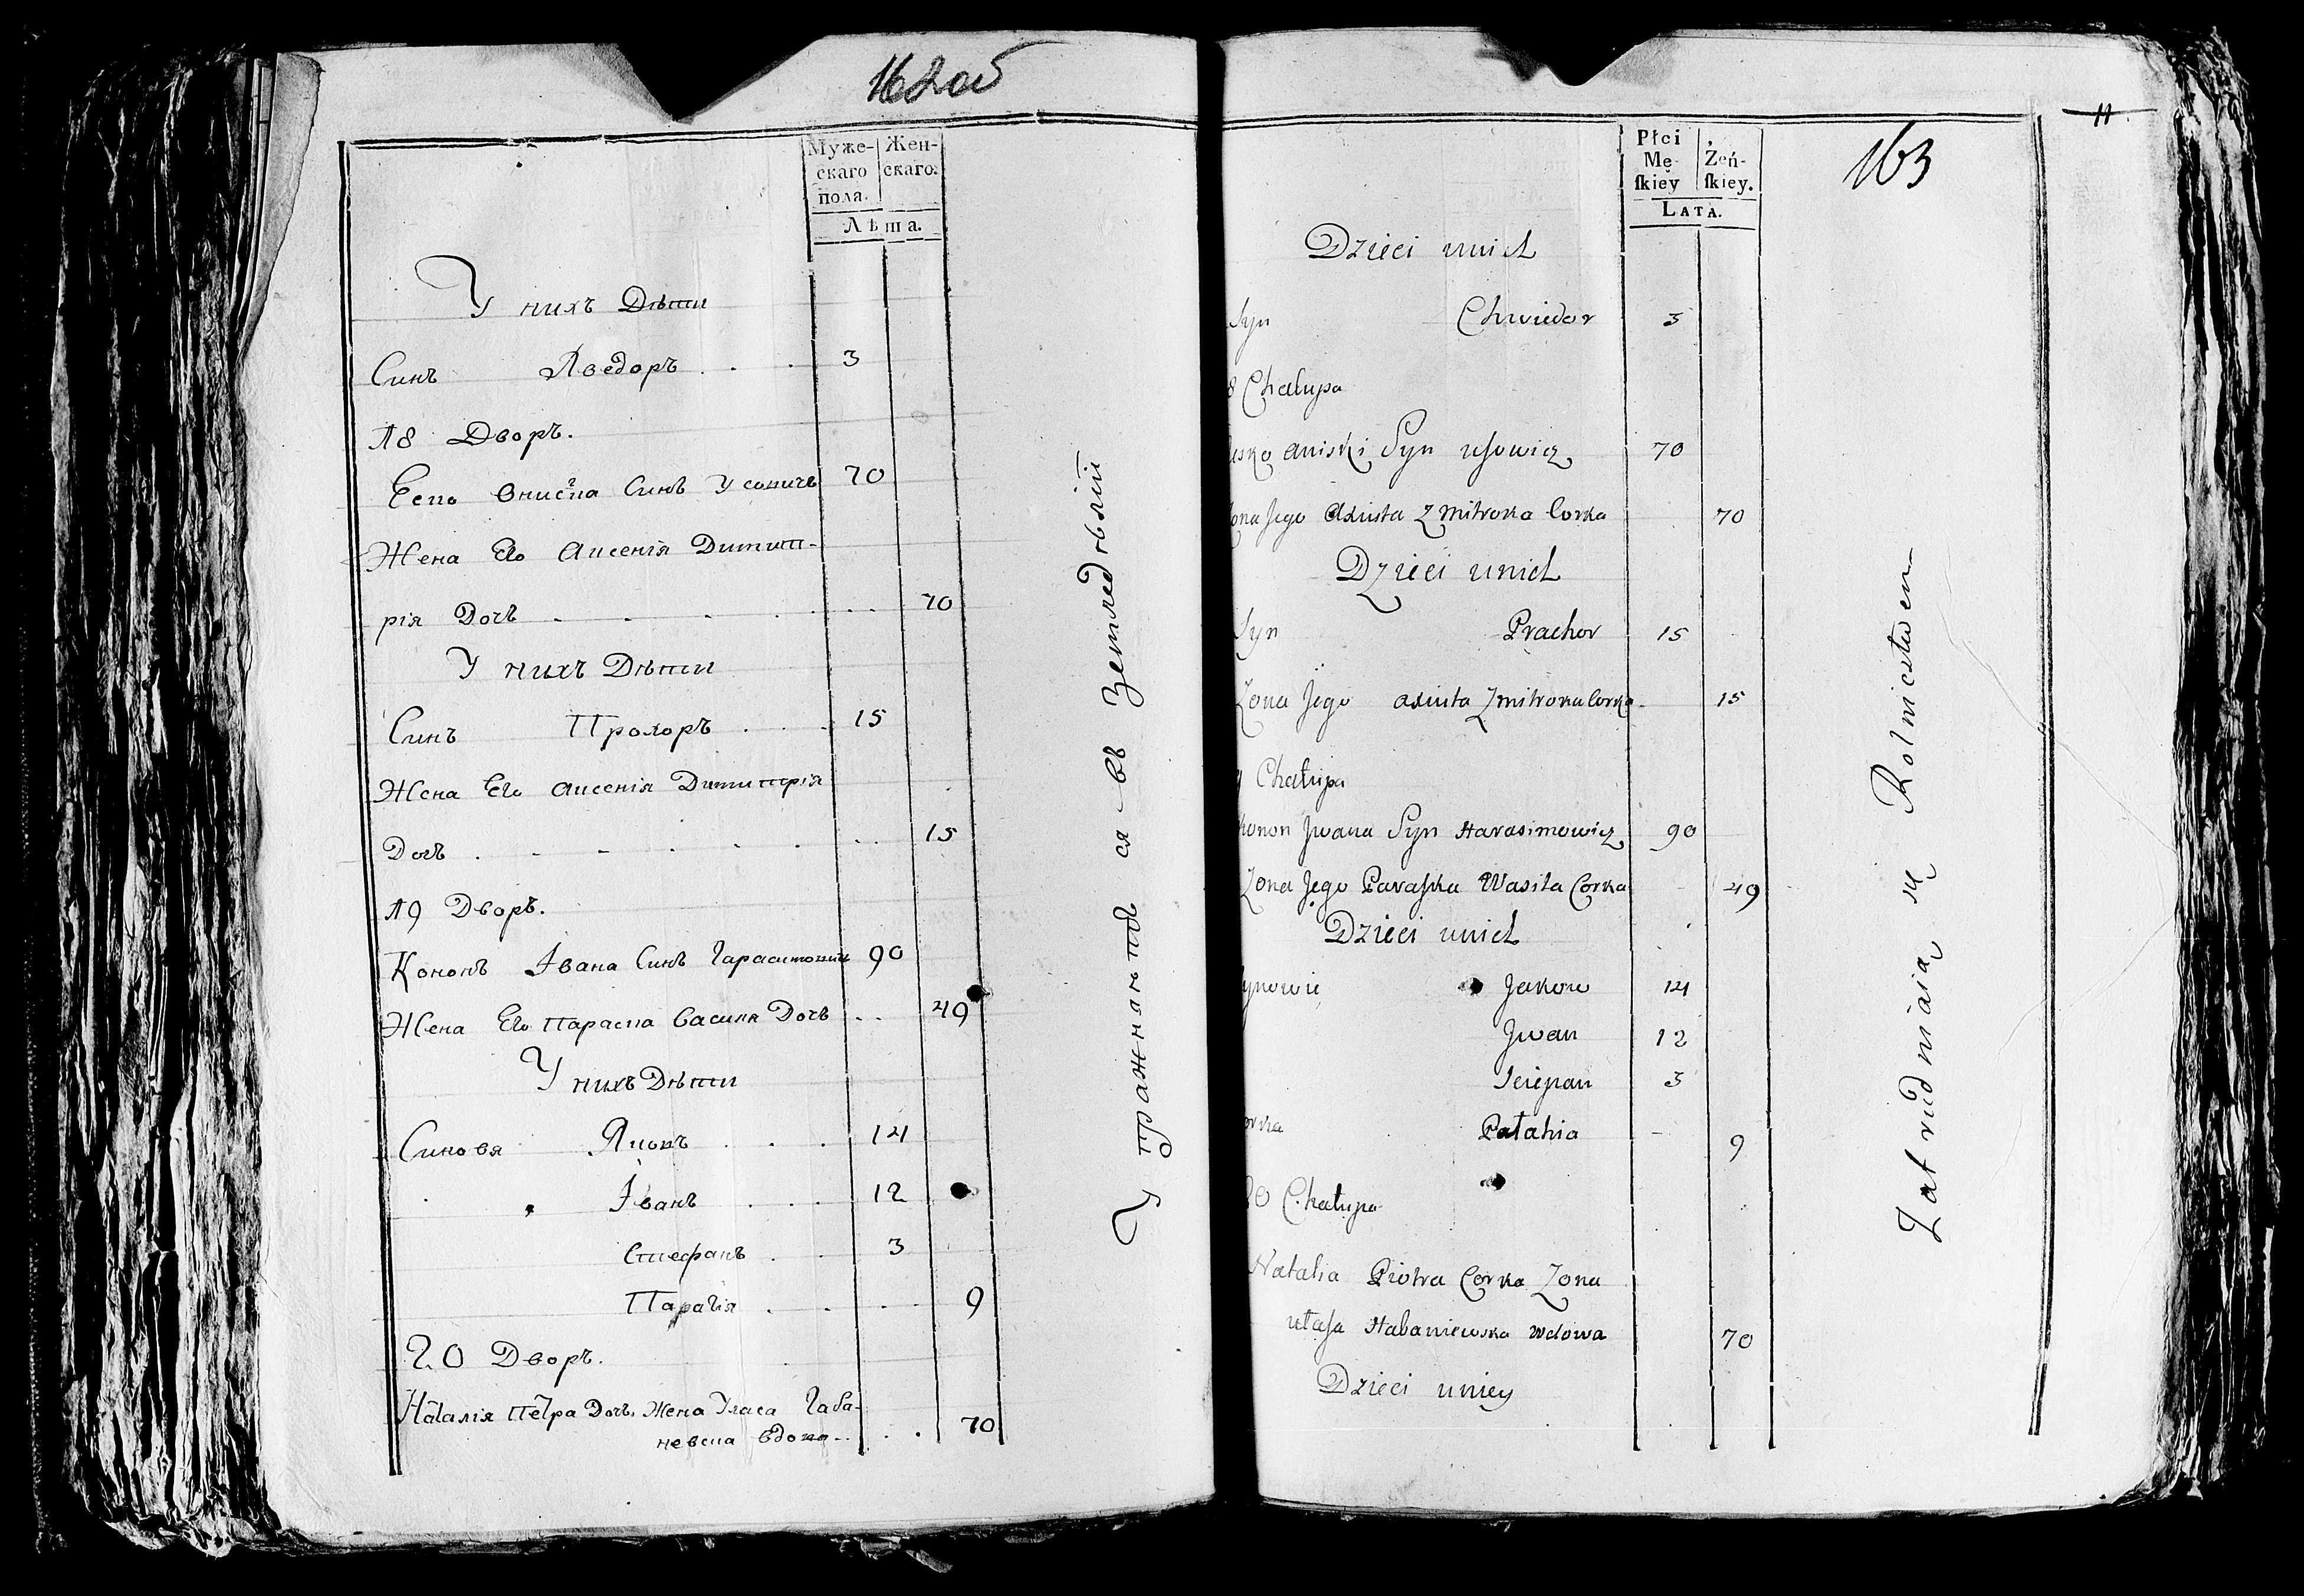 162 об
Муже-
скаго
пола.
Жен-
скаго.
Лѣта.
У нихъ Дѣти
Синъ Ѳведоръ . . . 3
18 Дворъ.
Еско Ониска Синъ Усовичъ 70
Жена Его Аксенія Димит-
рія Дочь - - - - . . . 70
У нихъ Дѣти
Синъ Прохоръ . . . 15
Жена Его Аксенія Димитрія
Дочь . - - . . . . . 15
19 Дворъ.
Кононъ Івана Синъ Гарасимовичъ 90
Жена Его Параска Василя Дочь . . 49
У нихъ Дѣти
Синовя Яковъ . . . 14
Іванъ . . . 12
Стефанъ . . 3
Парагія . . . . 9
20 Дворъ.
Наталія Петра Дочь Жена Уласа Габа-
невска вдова - . . . 70
Упражняютъ ся въ Земледѣліи
11
163
Płci
Mę-
ſkiey
Żeń-
ſkiey.
LATA.
Dzieci unich
Syn Chwiedor 3
8 Chałupa
usko aniski Syn usowicz 70
ona Jego Axiuta Zmitroka Corka 70
Dzieci unich
Syn Prachor 15
Zona Jego axiuta Zmitroka Corka 15
9 Chałupa
konon Jwana Syn Harasimowicz 90
Zona Jego Paraska Wasila Corka 49
Dzieci unich
ynowie Jakow 14
Jwan 12
Sciepan 3
orka Pałahia - 9
20 Chałupa
Natalia Piotra Corka Zona
ułasa Habaniewska wdowa 70
Dzieci uniey
Zatrudniaią się Rolnictwem